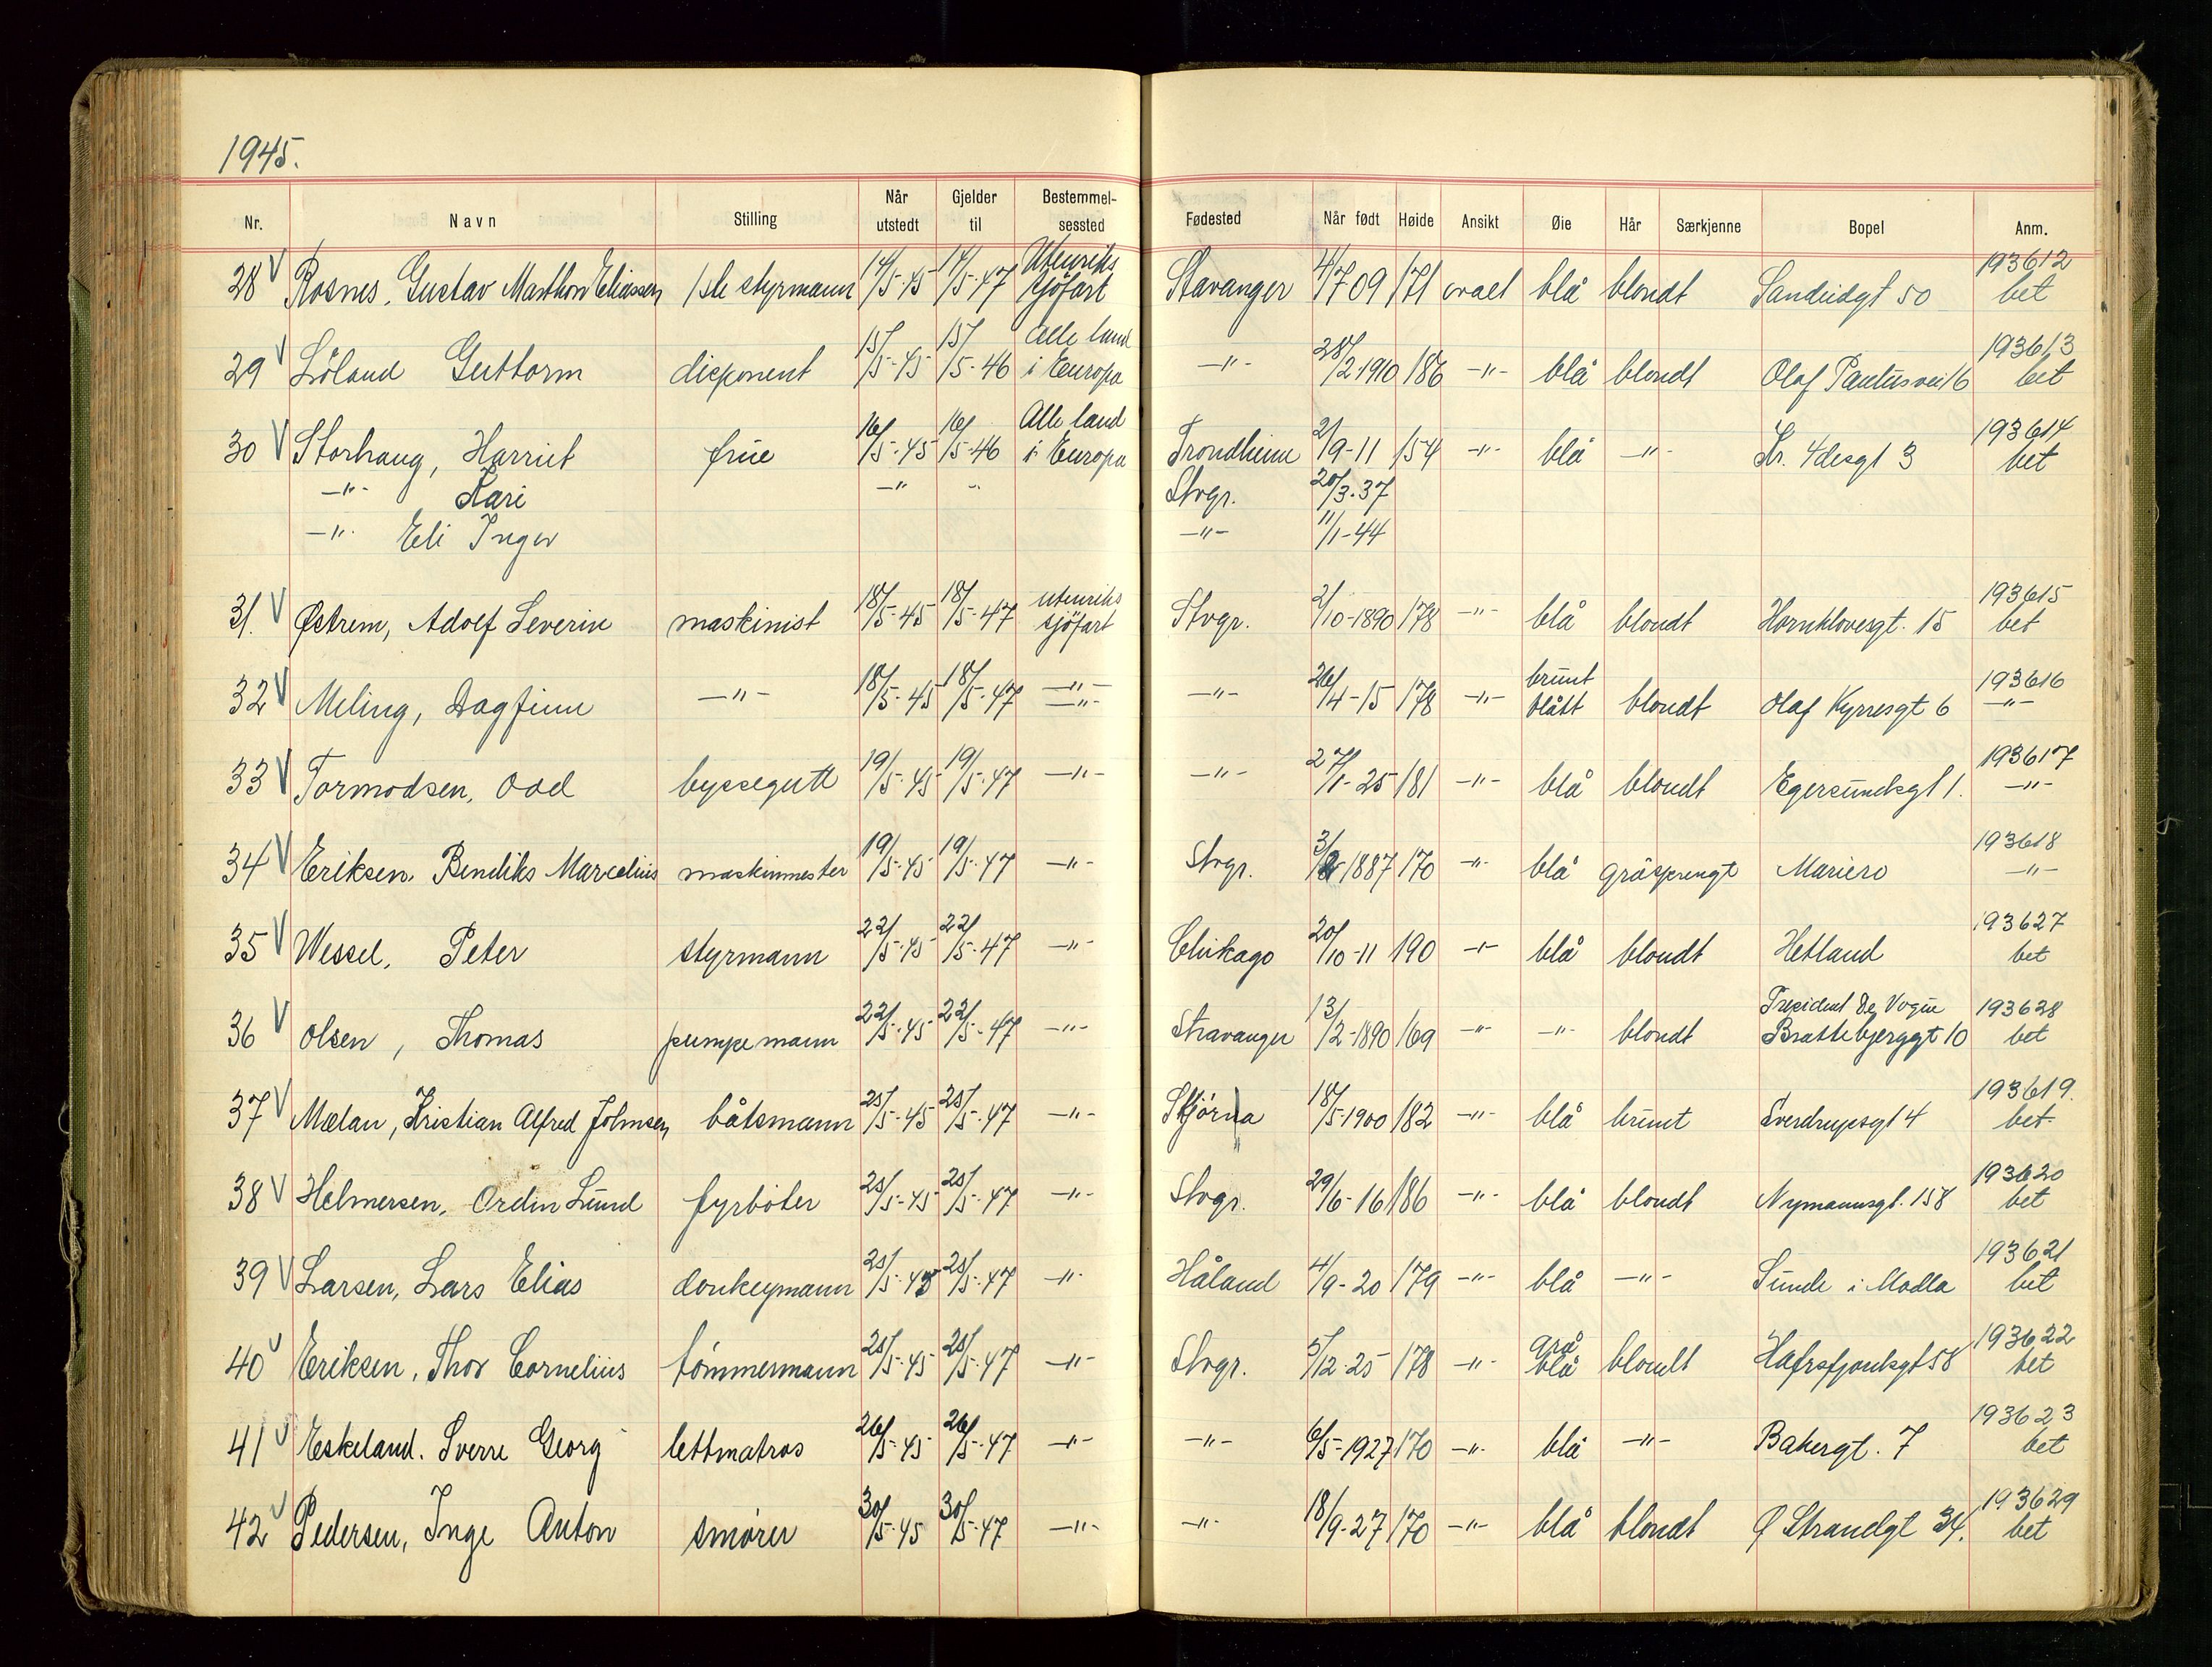 1945.
Nr. Navn Stilling Når utstedt Gjelder til Bestemmel-sessted Fødested Når født Høide Ansikt Øie Hår Særkjenne Bopel Anm.
28 V Rosnes, Gustav Marthon Eliassen 1ste styrmann 14/5-45 14/5-47 Utenriks sjöfart Stavanger 4/7 09 171 ovalt blå blondt Sandeidgt 50 193612 bet
29 V Löland Guttorm disponent 15/5-45 15/5-46 Alle land i Europa -"- 28/2 1910 186 -"- blå blondt Olaf Paulusvei 16 193613 bet
30 V Storhaug, Harriet frue 16/5-45 16/5-46 Alle land i Europa Trondheim 2/9-11 154 -"- blå -"- Kr. 4desgt 3 193614 bet
-"- Kari -"- " Stvgr. 20/3-37
-"- Eli Inger -"- 11/1-44
31. V Østrem, Adolf Severin maskinist 18/5-45 18/5-47 utenriks sjöfart Stvgr. 2/10-1890 178 -"- blå blondt Hornklovesgt. 15 193615 bet
32 V Meling, Dagfinn -"- 18/5-45 18/5-47 -"- -"- -"- 26/4-15 178 -"- brunt blått blondt Olaf Kyrresgt 6 193616 -"-
33 V Tormodsen, Odd byssegutt 19/5-45 19/5-47 -"- -"- 27/1-25 181 -"- blå blondt Egersundsgt 1. 193617 -"-
34 V Eriksen, Bendiks Marcelius maskinmester 19/5-45 19/5-47 -"- Stvgr. 3/2 1887 170 -"- blå gråsprengt Mariero 193618 -"-
35 V Wessel, Peter styrmann 22/5-45 22/5-47 -"- Chikago 20/10-11 190 -"- blå blondt Hetland 193627 bet
36 V Olsen, Thomas pumpemann 22/5-45 22/5-47 -"- Stavanger 13/2-1890 169 -"- -"- blondt President De Vogue Brattebjerggt 10 193628 bet
37 V Mælan, Kristian Alfred Johnsen båtsmann 25/5-45 25/5-47 -"- 18/5-1900 182 -"- blå brunt Sverdrupsgt 4 193619. bet
38 V Helmersen, Ordin Lund fyrböter 25/5-45 25/5-47 -"- Stvgr. 29/6-16 186 -"- blå blondt Nymannsgt. 158 193620 bet
39 V Larsen, Lars Elias donkeymann 25/5-45 25/5-47 -"- Håland 4/9-20 179 -"- blå -"- Sunde i Madla 193621 bet
40 V Eriksen, Thor Cornelius tömmermann 25/5-45 25/5-47 -"- Stvgr. 5/12-25 178 -"- grå blå blondt Hafrsfjordsgt 58 193622 bet
41 V Eskeland. Sverre Georg lettmatros 26/5-45 26/5-47 -"- -"- 6/5-1927 170 -"- blå -"- Bakergt. 7 193623 bet
42 V Pedersen, Inge Anton smører 30/5-45 30/5-47 -"- -"- 18/9-27 170 -"- blå blondt Ø Strandgt 34. 193629 bet